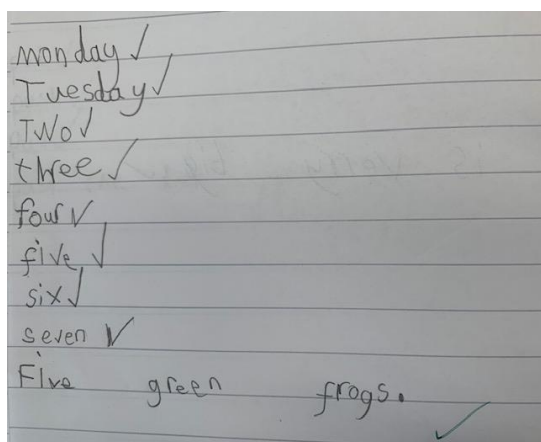 monday ✓
Tuesday ✓
TWO ✓
three ✓
four ✓
five ✓
six ✓
seven ✓
Five green frogs. ✓